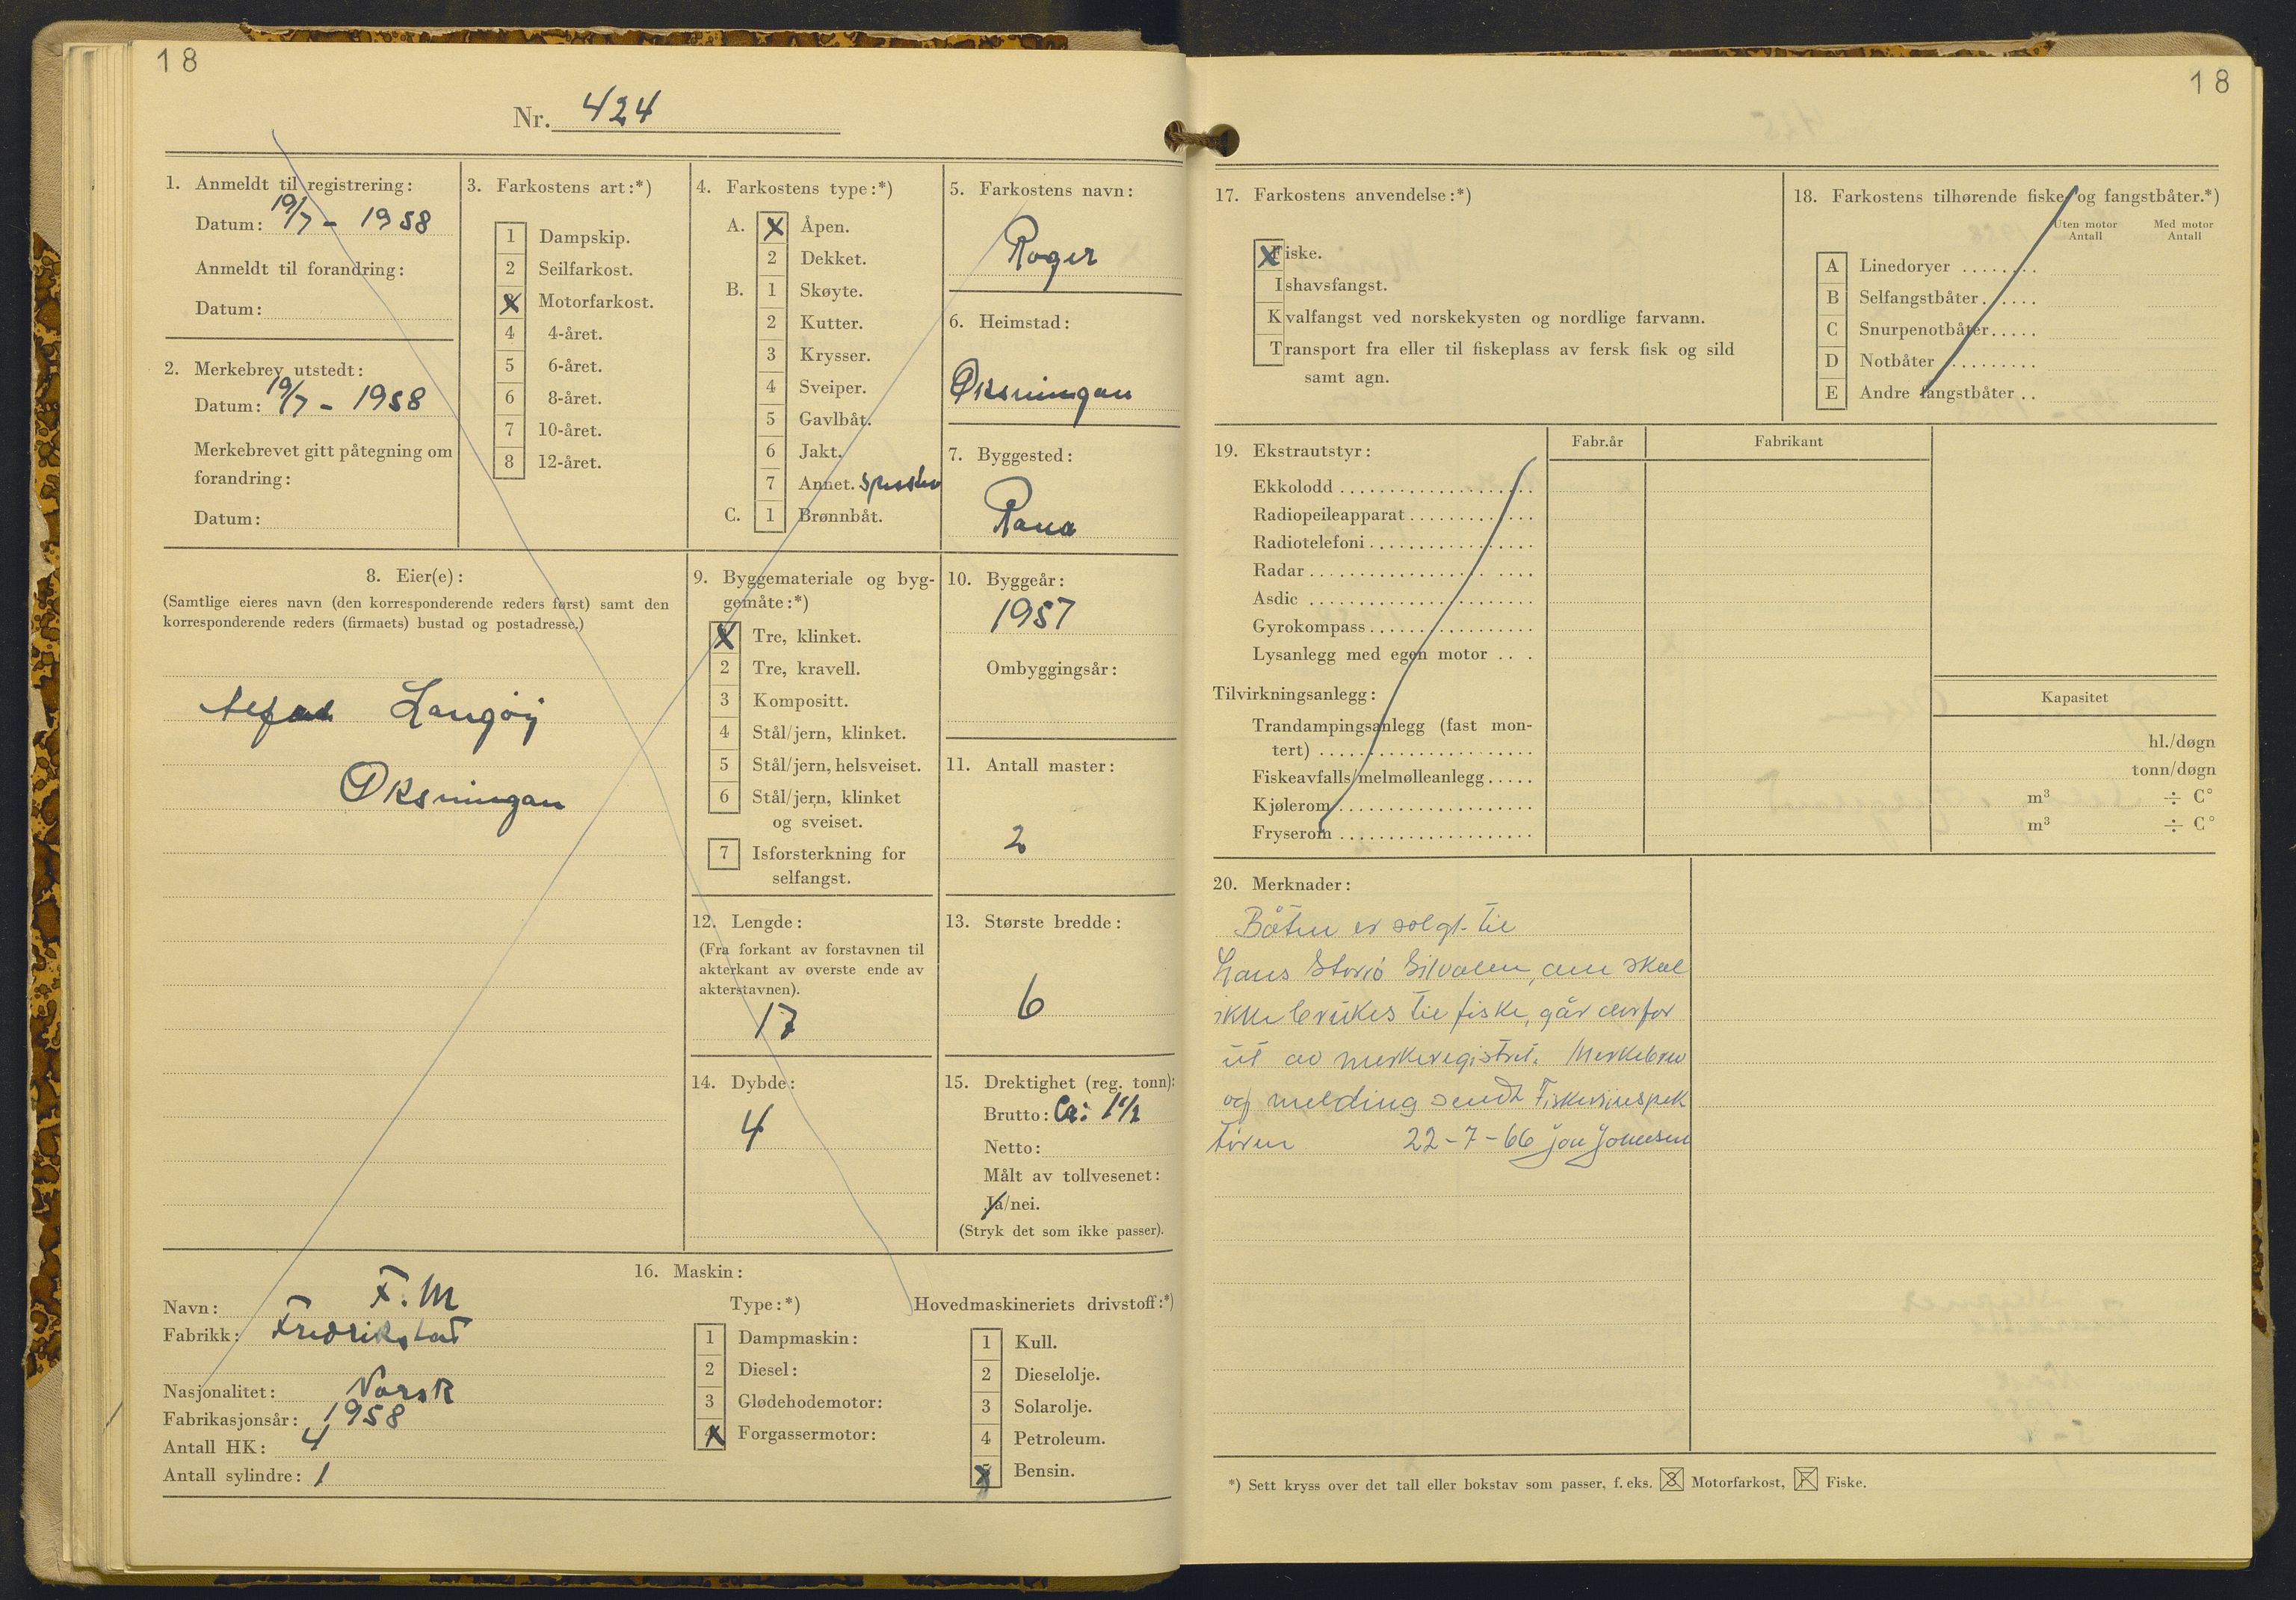 18
Nr. 424
1. Anmeldt til registrering:
Datum: 19/7 - 1958
Anmeldt til forandring:
Datum:
2. Merkebrev utstedt:
Datum: 19/7 - 1958
Merkebrevet gitt påtegning om
forandring:
Datum:
3. Farkostens art:*)
1 Dampskip.
2 Seilfarkost.
X Motorfarkost.
4 4-året.
5 6-året.
6 8-året.
7 10-året.
8 12-året.
4. Farkostens type:*)
A. X Åpen.
2 Dekket.
B. 1 Skøyte.
2 Kutter.
3 Krysser.
4 Sveiper.
5 Gavlbåt.
6 Jakt.
7 Annet.
C. 1 Brønnbåt.
5. Farkostens navn:
Roger
6. Heimstad:
Øksningan
7. Byggested:
Rana
8. Eier(e):
(Samtlige eieres navn (den korresponderende reders først) samt den
korresponderende reders (firmaets) bustad og postadresse.)
Langøy
Øksningan
9. Byggemateriale og byg-
gemåte:*)
X Tre, klinket.
2 Tre, kravell.
3 Kompositt.
4 Stål/jern, klinket.
5 Stål/jern, helsveiset.
6 Stål/jern, klinket
og sveiset.
7 Isforsterkning for
selfangst.
10. Byggeår:
1957
Ombyggingsår:
11. Antall master:
2
12. Lengde:
(Fra forkant av forstavnen til
akterkant av øverste ende av
akterstavnen).
17
13. Største bredde:
6
14. Dybde:
4
15. Drektighet (reg. tonn):
Brutto: Ca: 1 1/2
Netto:
Målt av tollvesenet:
Ja/nei.
(Stryk det som ikke passer).
16. Maskin:
Navn: F. M
Fabrikk: Fredrikstad
Nasjonalitet: Norsk
Fabrikasjonsår: 1958
Antall HK: 4
Antall sylindre: 1
Type:*)
1 Dampmaskin:
2 Diesel:
3 Glødehodemotor:
X Forgassermotor:
Hovedmaskineriets drivstoff:*)
1 Kull.
2 Dieselolje.
3 Solarolje.
4 Petroleum.
X Bensin.
18
17. Farkostens anvendelse:*)
Fiske.
Ishavsfangst.
Kvalfangst ved norskekysten og nordlige farvann.
Transport fra eller til fiskeplass av fersk fisk og sild
samt agn.
18. Farkostens tilhørende fiske- og fangstbåter.*)
Uten motor Antall
Med motor Antall
A Linedoryer ........
B Selfangstbåter......
C Snurpenotbåter.....
D Notbåter ..........
E Andre fangstbåter ..
19. Ekstrautstyr:
Fabr.år
Fabrikant
Ekkolodd ....................
Radiopeileapparat .............
Radiotelefoni .................
Radar .......................
Asdic .......................
Gyrokompass .................
Lysanlegg med egen motor ...
Tilvirkningsanlegg:
Kapasitet
Trandampingsanlegg (fast mon-
tert) ...................... hl./døgn
Fiskeavfalls/melmølleanlegg ..... tonn/døgn
Kjølerom .................... m³ ÷ C°
Fryserom .................... m³ ÷ C°
20. Merknader:
Båten er solgt til
Hans Storrø Silvalen, skal
ikke brukes til fiske, går derfor
ut av merkeregistret. Merkebrev
og melding sendt Fiskeriinspek
tøren 22-7-66 Jon Johnsen
*) Sett kryss over det tall eller bokstav som passer, f. eks. 3 Motorfarkost, F Fiske.